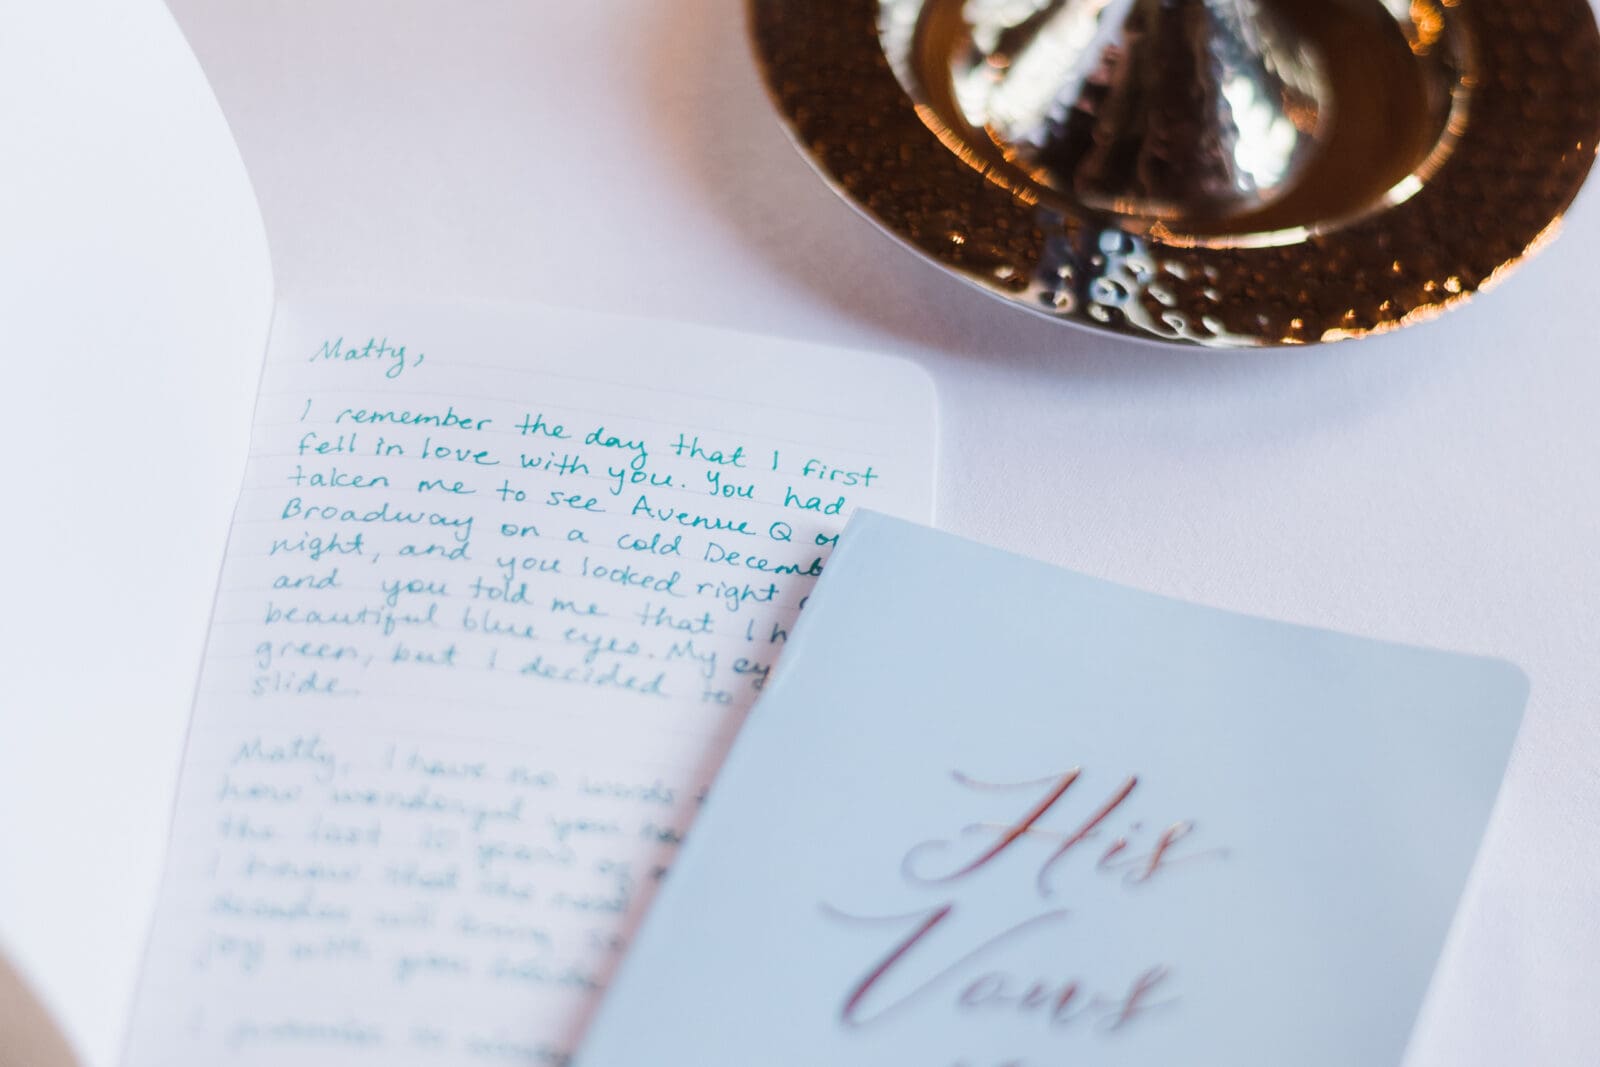 Matty,
I remember the day that I first
fell in love with you. You had
taken me to see Avenue Q on
Broadway on a cold Decemb
night, and you looked right
and you told me that I h
beautiful blue eyes. My ey
green, but I decided to
slide.
Matty, I have no words
how wonderful you
the last 10 years of
I know that the next
decades will bring
joy with you
I promise to
His
Vows